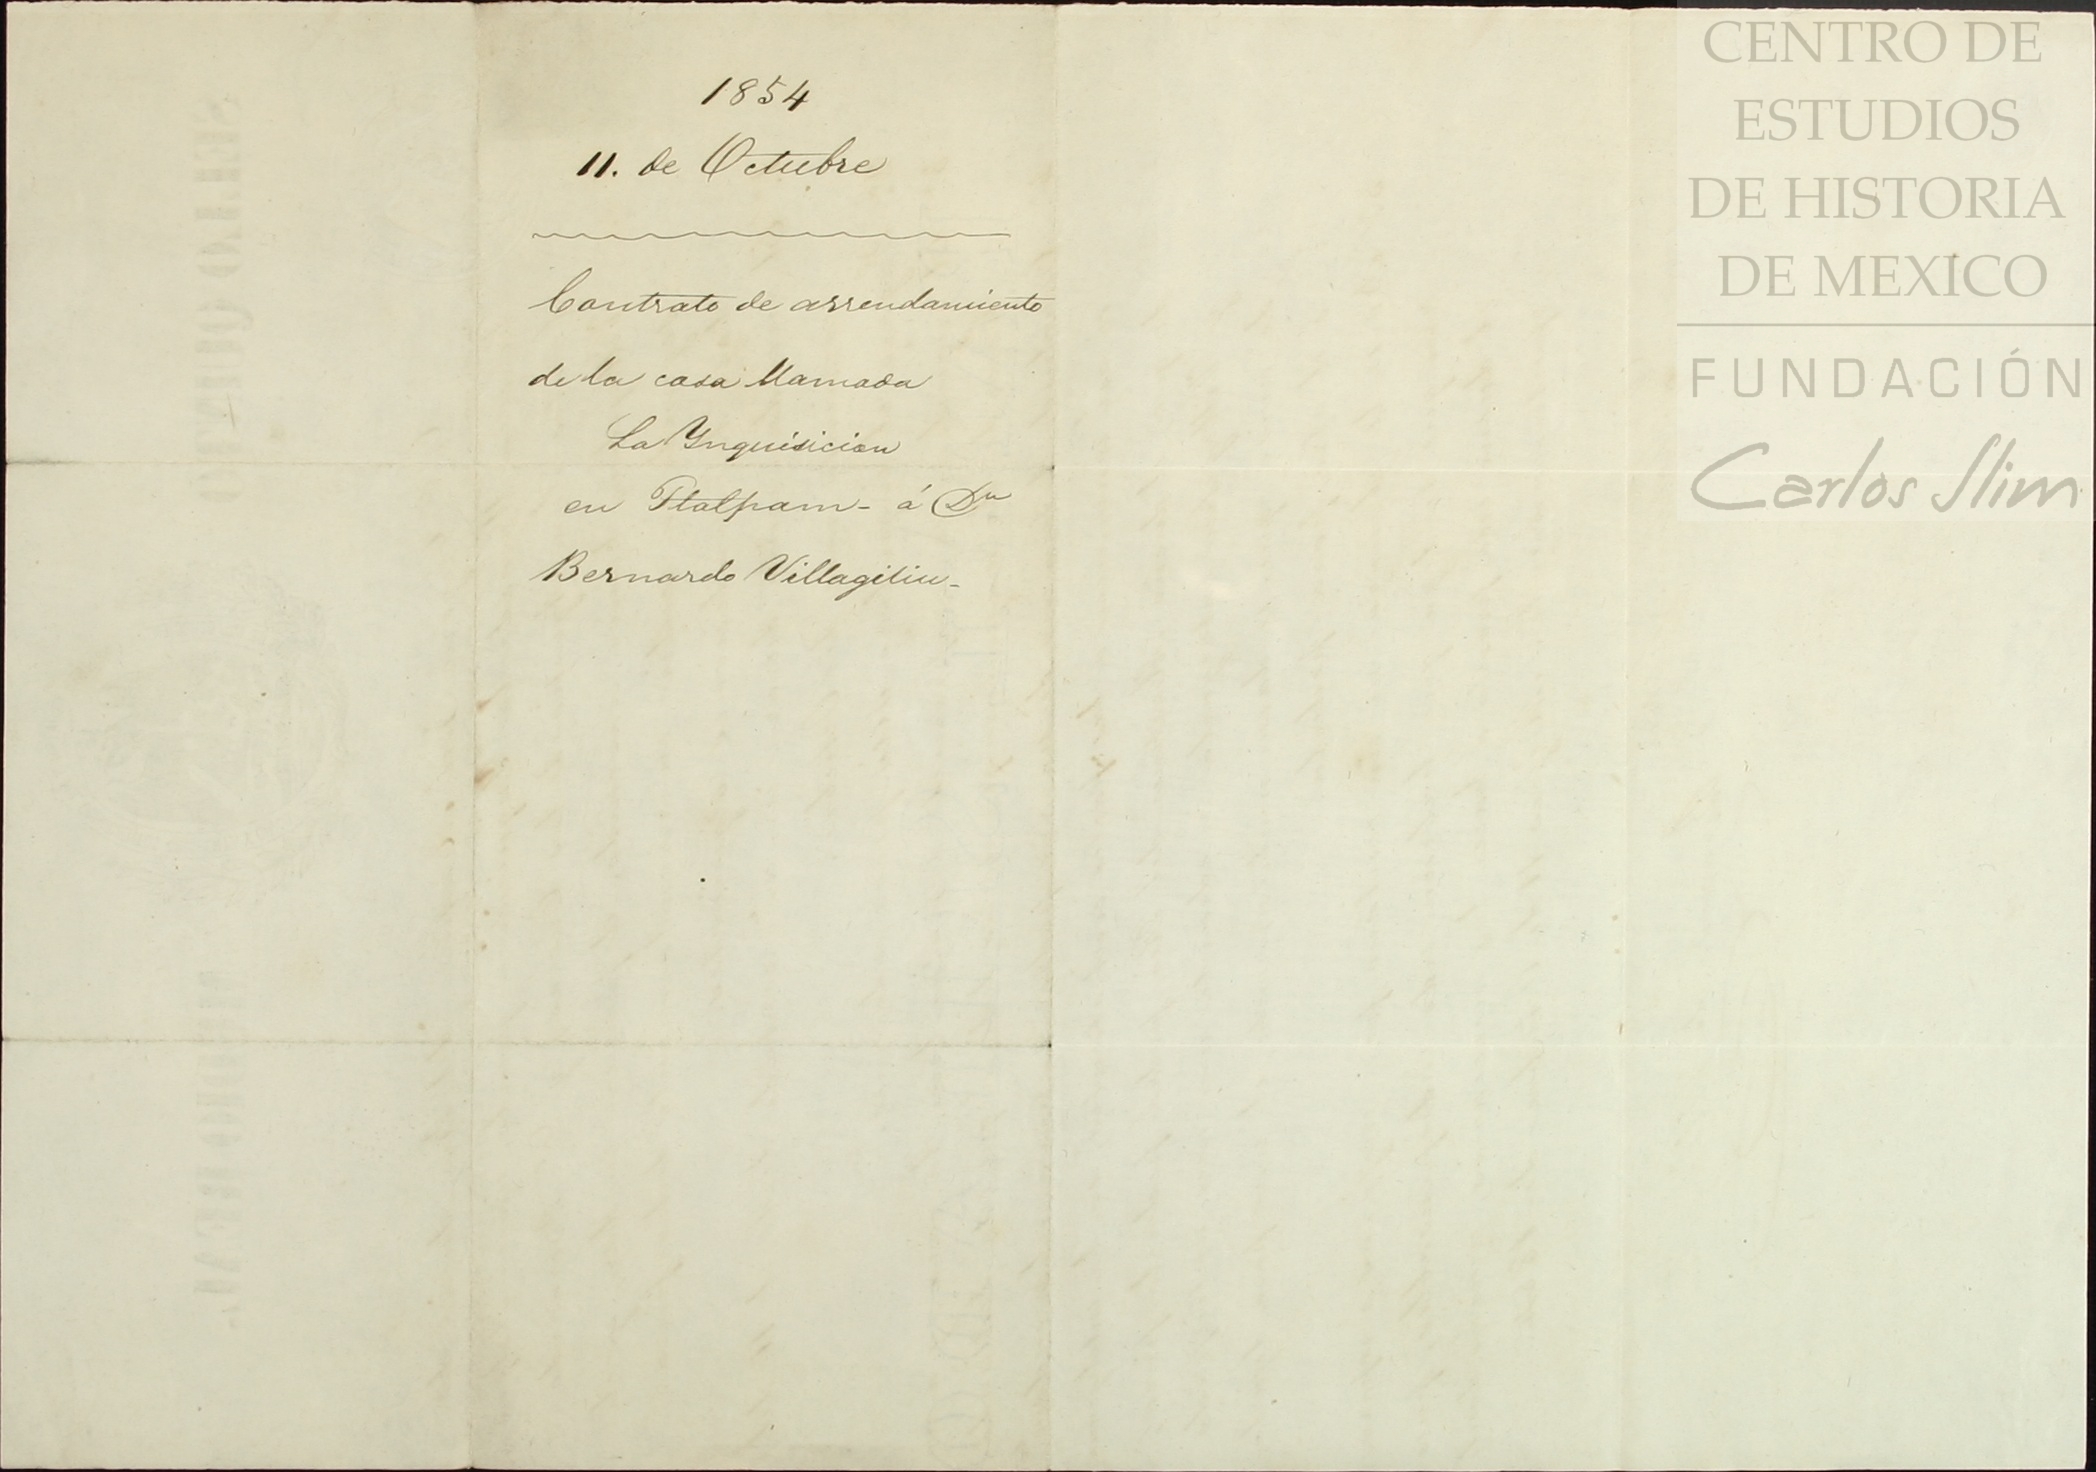 1854
11. de Octubre
Contrato de arrendamiento
de la casa llamada
La Ynquisicion
en Tlalpam - á Dn
Bernardo Villagiliu -
CENTRO DE
ESTUDIOS
DE HISTORIA
DE MEXICO
FUNDACIÓN
Carlos Slim